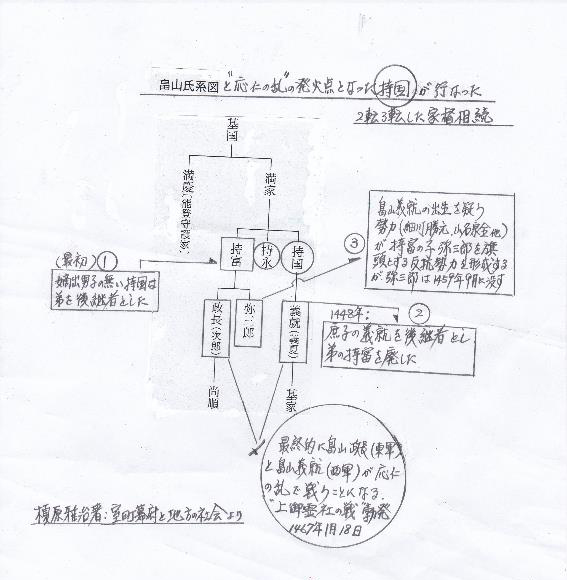 畠山氏系図と"応仁の乱"の発火点となった持国が行なった
2転3転した家督相続
基国
満慶(能登守護家)
満家
持富
持永
持国
(最初)①
嫡出男子の無い持国は
弟を後継者とした
③
畠山義就の出生を疑う
勢力(細川勝元、山名宗全他)
が持富の子弥三郎を旗
頭とする反抗勢力を形成する
が弥三郎は1459年9月に没す
政長(次郎)
弥三郎
義就(義夏)
1448年:②
庶子の義就を後継者とし
弟の持富を廃した
尚順
基家
最終的に畠山政長(東軍)
と畠山義就(西軍)が応仁
の乱で戦うことになる.
"上御霊社の戦"勃発
1467年1月18日
榎原雅治著:室町幕府と地方の社会より